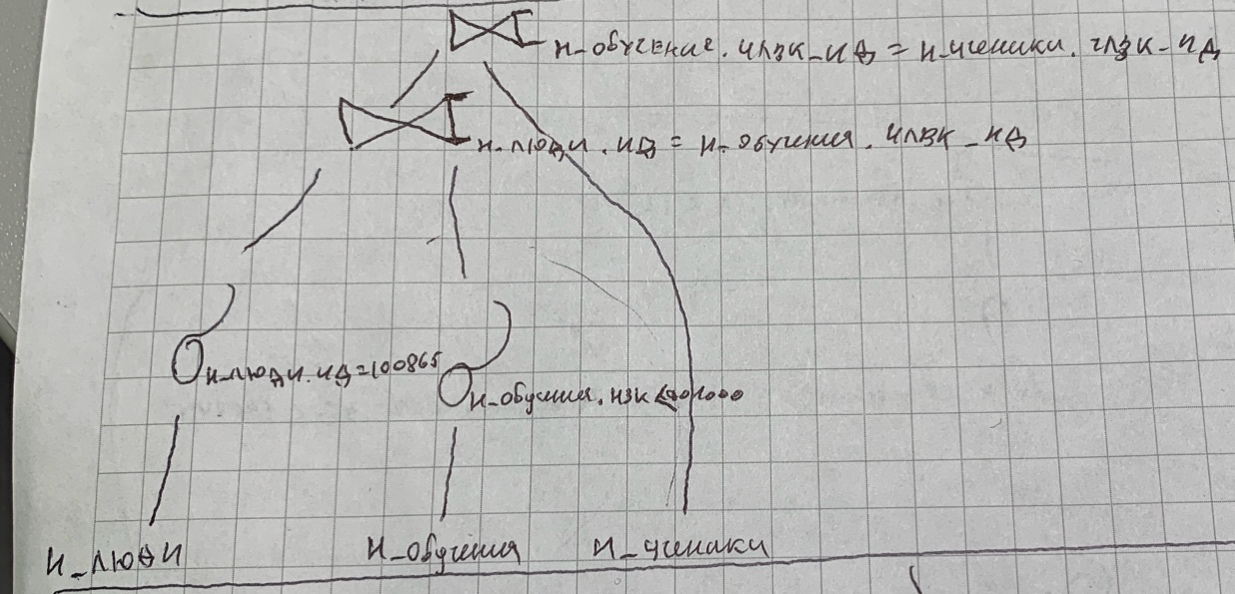 Н_обучение.члвк_ид = Н_ученики.члвк_ид
Н_люди.ид = Н_обучения.члвк_ид
Н_люди.ид=100865
Н_обучения.нзк <
Н_люди
Н_обучения
Н_ученики